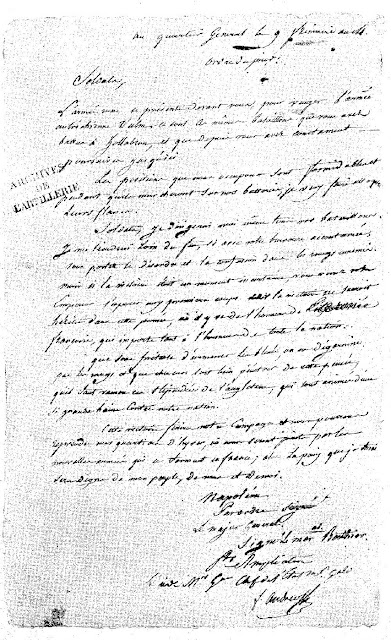 au quartier Général le 9 frimaire an 14
ordre du jour
Soldats,
L'armée russe se présente devant vous pour venger l'armée
autrichienne d'Ulm, ce sont ces mêmes bataillons que vous avez
battus à Hollabrun, et que depuis vous avez constamment
poursuivis
ARCHIVES
DE
L'ARTILLERIE
Les positions que nous occupons sont formidables et
pendant qu'ils marcheront sur nos batteries, ils me
leurs flancs.
Soldats, je dirigerai moi même tous vos bataillons.
Je me tiendrai loin du feu, si avec votre bravoure accoutumée,
vous portez le désordre et la confusion dans les rangs ennemis.
mais si la victoire était un moment incertaine, vous verriez votre
Empereur s'exposer aux premiers coups la victoire ne saurait
hésiter dans cette journée, où il y va de l'honneur de l'infanterie
française, qui importe tant à l'honneur de toute la nation.
que sous prétexte d'emmener les blessés, on ne dégarnisse
pas les rangs et que chacun soit bien pénétré de cette pensée,
qu'il faut vaincre ces stipendiés de l'angleterre, qui sont animés d'une
si grande haine contre notre nation.
Cette victoire finira notre Campagne et nous pourrons
reprendre nos quartiers d'hyver, où nous serons joints par les
nouvelles armées qui se forment en france, et la paix que je ferai
sera digne de mon peuple, de vous et de moi.
Napoléon
Par ordre
Le major Général
Signé le mar.al Berthier
Pour Ampliation